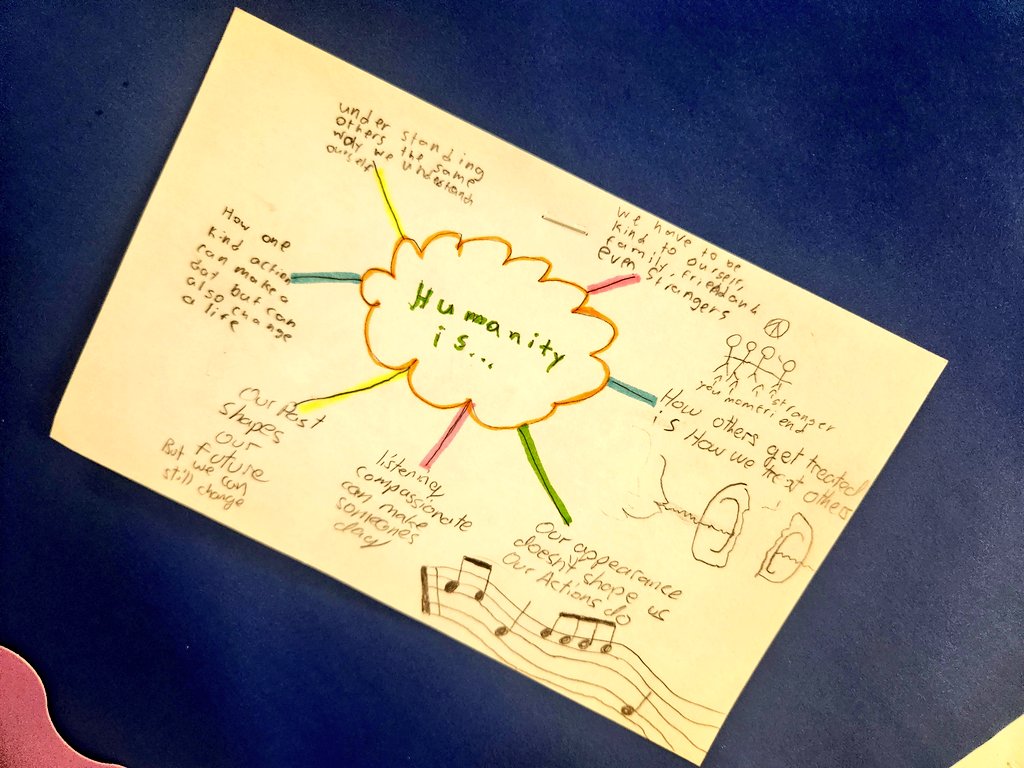 Humanity
is...
under standing
others the same
way we understand
ourself
we have to be
kind to ourself,
family, friend and
even strangers
you mom friend stranger
How others get treated
is How we treat others
Our appearance
doesn't shape us
Our Actions do
listening
compassionate
can make
someones
day
Our Past
shapes
our
future
But we can
still change
How one
kind action
can make a
day but can
also change
a life